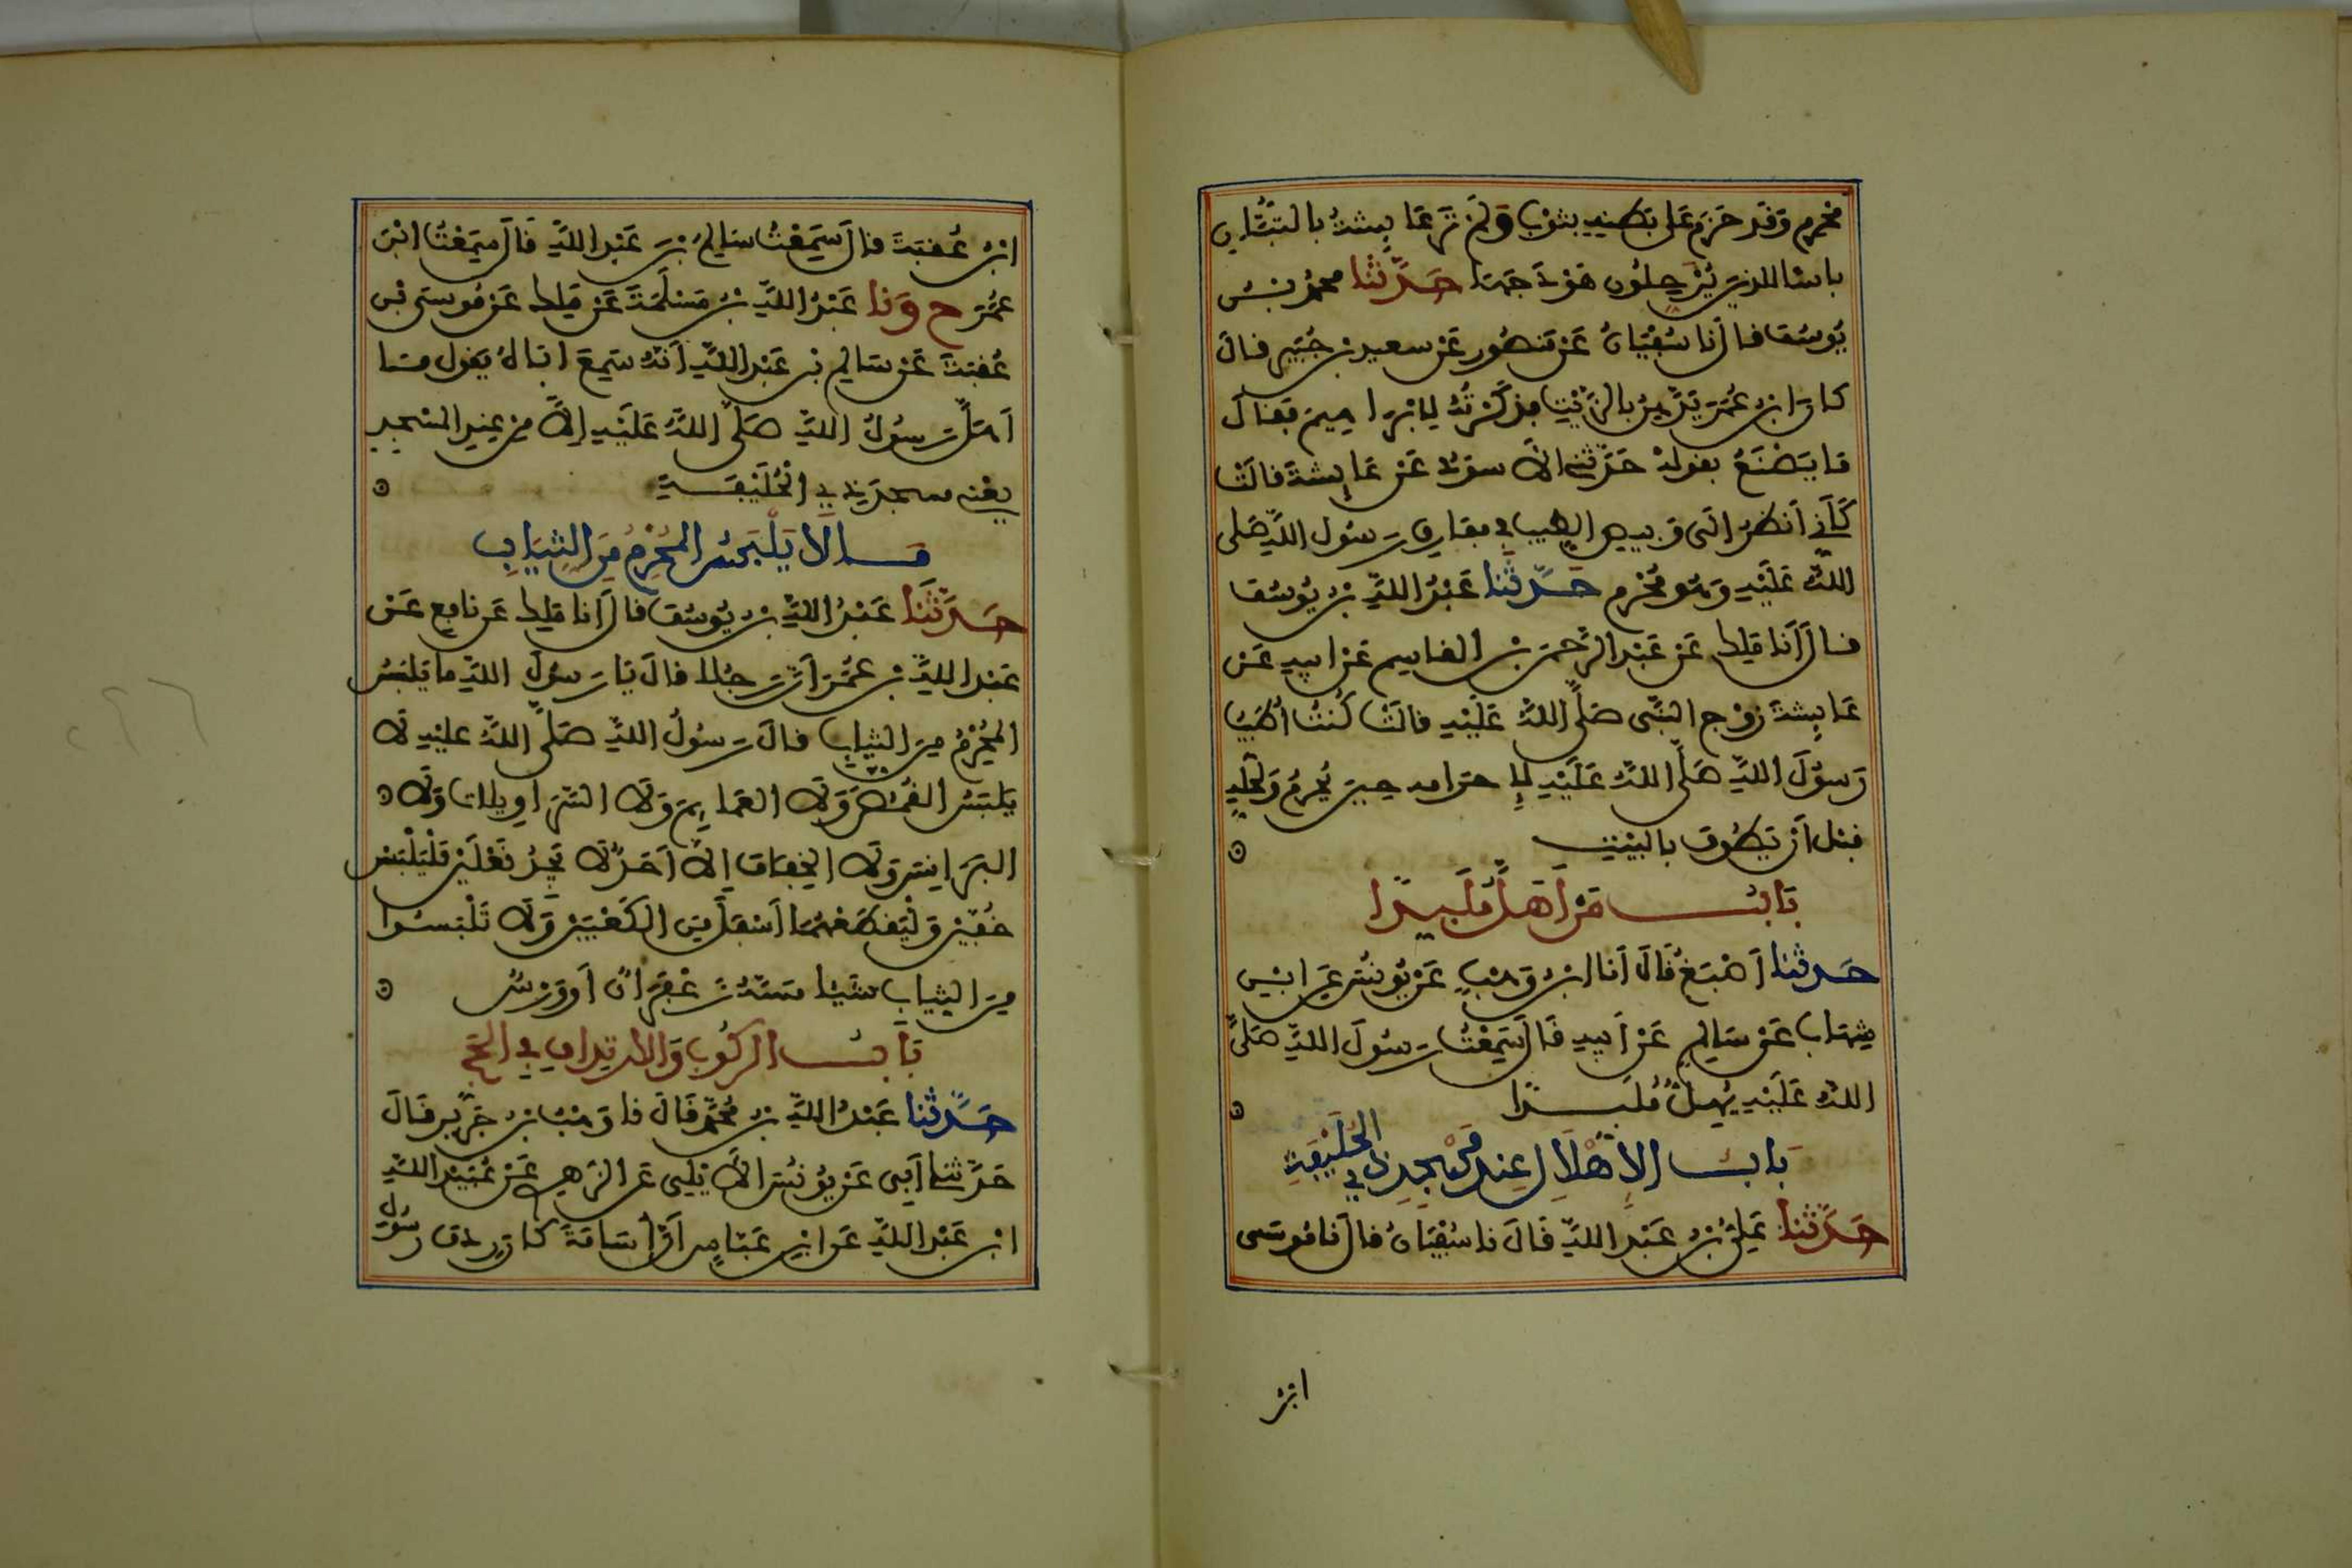 محرم وقد حزم على بطنه بثوب ولم تر عايشة بالتبان
باسا للذين يرحلون هودجها حدثنا محمد بن
يوسف قال نا سفيان عن منصور عن سعيد بن جبير قال
كان ابن عمر يدهن بالزيت فذكرته لابراهيم فقال
ما يصنع بقوله حدثني الاسود عن عايشة قالت
كأني أنظر الى وبيص الطيب في مفارق رسول الله صلى
الله عليه وهو محرم حدثنا عبد الله بن يوسف
قال أنا ملك عن عبد الرحمن بن القاسم عن ابيه عن
عايشة زوج النبي صلى الله عليه قالت كنت أطيب
رسول الله صلى الله عليه لإحرامه حين يحرم ولحله
قبل أن يطوف بالبيت
باب من أهل ملبدا
حدثنا أصبغ قال أنا ابن وهب عن يونس عن ابن
شهاب عن سالم عن أبيه قال سمعت رسول الله صلى
الله عليه يهل ملبدا
باب الإهلال عند مسجد ذي الحليفة
حدثنا علي بن عبد الله قال نا سفيان قال نا موسى
ابن
ابن عقبة قال سمعت سالم بن عبد الله قال سمعت ابن
عمر ح ونا عبد الله بن مسلمة عن ملك عن موسى بن
عقبة عن سالم بن عبد الله أنه سمع اباه يقول ما
أهل رسول الله صلى الله عليه إلا من عند المسجد
يعني مسجد ذي الحليفة
ما لا يلبس المحرم من الثياب
حدثنا عبد الله بن يوسف قال أنا ملك عن نافع عن
عبد الله بن عمر أن رجلا قال يا رسول الله ما يلبس
المحرم من الثياب قال رسول الله صلى الله عليه لا
يلبس القمص ولا العمايم ولا السراويلات ولا
البرانس ولا الخفاف إلا أحد لا يجد نعلين فليلبس
خفين وليقطعهما أسفل من الكعبين ولا تلبسوا
من الثياب شيئا مسه زعفران أو ورس
باب الركوب والارتداف في الحج
حدثنا عبد الله بن محمد قال نا وهب بن جرير قال
حدثني أبي عن يونس الأيلي عن الزهري عن عبيد الله
ابن عبد الله عن ابن عباس أن أسامة كان ردف رسول